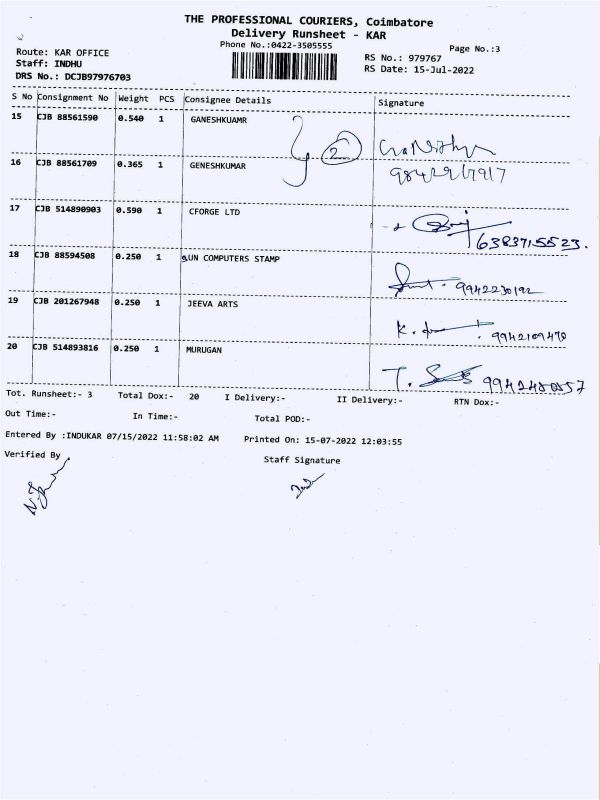 THE PROFESSIONAL COURIERS, Coimbatore
Delivery Runsheet - KAR
Phone No.:0422-3505555
Page No.:3
Route: KAR OFFICE
RS No.: 979767
Staff: INDHU
RS Date: 15-Jul-2022
DRS No.: DCJB97976703
S No Consignment No Weight PCS Consignee Details Signature
15 CJB 88561590 0.540 1 GANESHKUAMR
2
16 CJB 88561709 0.365 1 GENESHKUMAR
17 CJB 514890903 0.590 1 CFORGE LTD
6383715523.
18 CJB 88594508 0.250 1 SUN COMPUTERS STAMP
9942230192
19 CJB 201267948 0.250 1 JEEVA ARTS
K. 9942109470
20 CJB 514893816 0.250 1 MURUGAN
T.
Tot. Runsheet:- 3 Total Dox:- 20 I Delivery:- II Delivery:- RTN Dox:-
Out Time:- In Time:- Total POD:-
Entered By :INDUKAR 07/15/2022 11:58:02 AM Printed On: 15-07-2022 12:03:55
Verified By Staff Signature